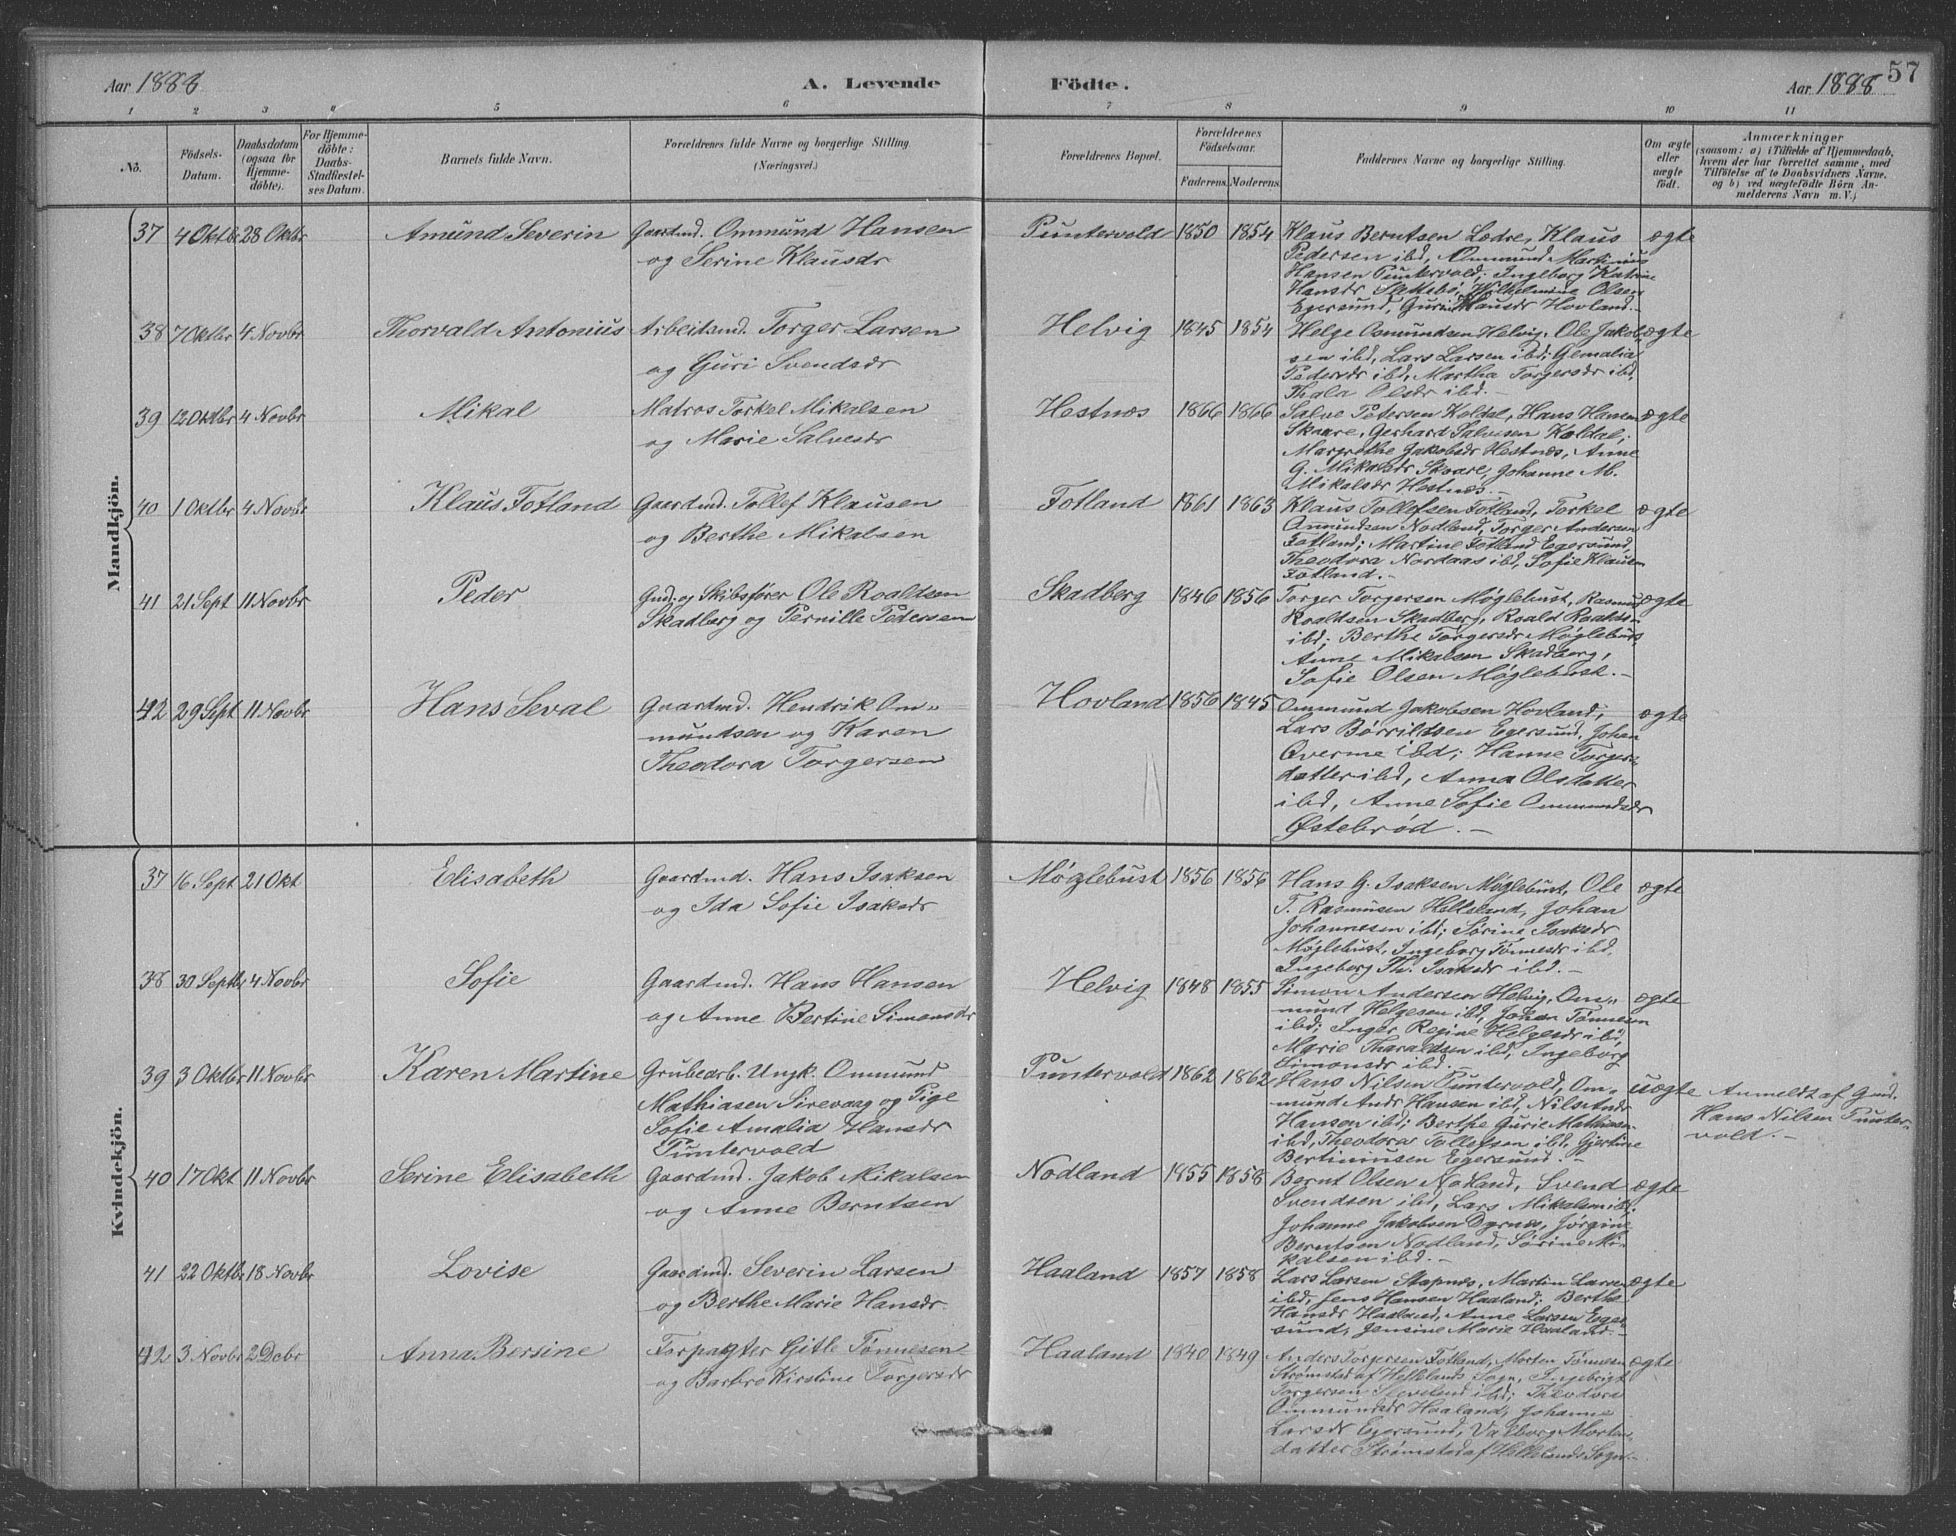 57
Aar 1888 A. Levende Födte. Aar 1888
1 2 3 4 5 6 7 8 9 10 11
No. Födsels-Datum. Daabsdatum (ogsaa for Hjemmedöbte). For Hjemmedöbte: Daabs-Stadfæstelses Datum. Barnets fulde Navn. Forældrenes fulde Navne og borgerlige Stilling. (Næringsvei.) Forældrenes Bopæl. Forældrenes Födselsaar. Faderens. Moderens. Faddernes Navne og borgerlige Stilling. Om ægte eller uægte födt. Anmærkninger (saasom: a) i Tilfælde af Hjemmedaab, hvem der har forrettet samme, med Tilföielse af to Daabsvidners Navne, og b) ved uægtefödte Börn Anmelderens Navn m. V.)
Mandkjön.
37 4 Oktbr 28 Oktbr Amund Severin Gaardmd. Ommund Hansen Puntervold 1850 1854 Klaus Berntsen Lædre, Klaus ægte
og Serine Klausdr Pedersen ibd, Ommund Martinius
Hansen Puntervold; Ingeborg Katrine
Hansdr Slettebö, Wilhelmine Olsen
Egersund, Guri Klausdr Hovland.-
38 7 Oktbr 4 Novbr Thorvald Antonius Arbeitsmd. Torger Larsen Helvig 1845 1854 Helge Osmundsen Helvig. Ole Jakob- ægte
og Guri Svendsdr sen ibd, Lars Larsen ibd; Gemalia
Pedersdr ibd, Martha Torgersdr ibd,
Thala Olsdr ibd.-
39 12 Oktbr 4 Novbr Mikal Matros Torkel Mikalsen Hestnes 1866 1866 Salve Petersen Koldal, Hans Hansen ægte
og Marie Salvesdr Skaare, Gerhard Salvesen Koldal;
Margrethe Jakobsdr Hestnes, Anne
G. Mikalsdr Skaare, Johanne M.
Mikalsdr Hestnes.-
40 1 Oktbr 4 Novbr Klaus Fotland Gaardmd. Tollef Klausen Fotland 1861 1863 Klaus Tollefsen Fotland, Torkel ægte
og Berthe Mikalsen Omundsen Nodland, Torger Andersen
Fotland; Martine Fotland Egersund,
Theodora Nordaas ibd, Sofie Klausen
Fotland.-
41 21 Sept 11 Novbr Peder Gmd. og Skibsfører Ole Roaldsen Skadberg 1846 1856 Torger Torgersen Møglebust, Rasmus ægte
Skadberg og Pernille Pedersen Roaldsen Skadberg, Roald Roaldsen
ibd; Berthe Torgersdr Møglebust,
Anne Mikalsen Skadberg,
Sofie Olsen Møglebust.-
42 29 Sept 11 Novbr Hans Seval Gaardmd. Hendrik Om- Hovland 1856 1845 Ommund Jakobsen Hovland, ægte
mundsen og Karen Lars Børrildsen Egersund, Johan
Theodora Torgersen Qverme ibd; Hanne Torgers-
datter ibd, Anna Olsdatter
ibd, Anne Sofie Ommundsdr
Østebrød.-
Kvindekjön.
37 16 Sept 21 Okt Elisabeth Gaardmd. Hans Isaksen Møglebust 1856 1856 Hans G. Isaksen Møglebust, Ole ægte
og Ida Sofie Isaksdr T. Rasmusen Helleland, Johan
Johannesen ibd; Sørine Isaksdr
Møglebust, Ingeborg Tønnesdr ibd,
Ingeborg Th. Isaksdr ibd.-
38 30 Septbr 4 Novbr Sofie Gaardmd. Hans Hansen Helvig 1848 1855 Simon Andersen Helvig, Om- ægte
og Anne Bertine Simonsdr mund Helgesen ibd, Johan Tønnesen
ibd; Inger Regine Helgesdr ibd,
Marie Tharaldsen ibd, Ingeborg
Simonsdr ibd.
39 3 Oktbr 11 Novbr Karen Martine Grubearb. Ungk. Ommund Puntervold 1862 1862 Hans Nilsen Puntervold, Om- uægte Anmeldt af Gmd.
Mathiasen Sirevaag og Pige mund Andr Hansen ibd, Nils Andr Hans Nilsen Punter-
Sofie Amalia Hansdr Hanson ibd; Berthe Gurie Mathiasen vold.-
Puntervold ibd, Theodora Tollefsen ibd, Gjertine
Bertinusen Egersund.-
40 17 Okt 11 Novbr Serine Elisabeth Gaardmd. Jakob Mikalsen Nodland 1855 1858 Bernt Olsen Nodland, Svend ægte
og Anne Berntsen Svendsen ibd, Lars Mikalsen ibd;
Johanne Jakobsen Dyrnes, Jørgine
Berntsen Nodland, Sørine Mi-
kalsen ibd.-
41 22 Oktbr 18 Novbr Lovise Gaardmd. Severin Larsen Haaland 1857 1858 Lars Larsen Stapnes, Martin Larsen ægte
og Berthe Marie Hansdr. ibd, Jens Hansen Haaland; Berthe
Hansdr Haaland, Anne Larsen Eger-
sund, Jensine Marie Haaland.-
42 3 Novbr 2 Debr Anna Bersine Forpagter Gitle Tønnesen Haaland 1840 1849 Anders Torgersen Fotland, Morten Tønnesen ægte
og Barbro Kirstine Torgersdr Strømstad af Hellelands Sogn, Ingebrigt
Torgersen ibd; Theodora
Ommundsdr Haaland, Johanne
Larsdr Egersund, Valborg Morten-
datter Strømstad af Hellelands Sogn.-